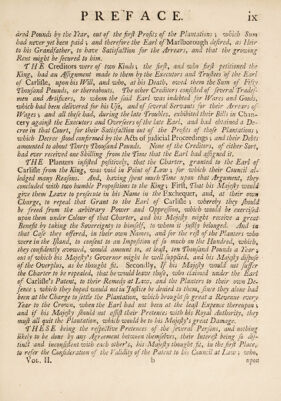 PREFACE. ix
dred Pounds by the Year, out of the first Profits of the Plantations; which Sum
had never yet been paid; and therefore the Earl of Marlborough desired, as Heir
to his Grandfather, to have Satisfaction for the Arrears, and that the growing
Rent might be secured to him.
THE Creditors were of two Kinds; the first, and who first petitioned the
King, had an Assignment made to them by the Executors and Trustees of the Earl
of Carlisle, upon his Will, and who, at his Death, owed them the Sum of Fifty
Thousand Pounds, or thereabouts. The other Creditors consisted of several Trades-
men and Artificers, to whom the said Earl was indebted for Wares and Goods,
which had been delivered for his Use, and of several Servants for their Arrears of
Wages; and all these had, during the late Troubles, exhibited their Bills in Chan-
cery against the Executors and Overseers of the late Earl, and had obtained a De-
cree in that Court, for their Satisfaction out of the Profits of those Plantations;
which Decree stood confirmed by the Acts of judicial Proceedings; and their Debts
amounted to about Thirty Thousand Pounds. None of the Creditors, of either Sort,
had ever received one Shilling from the Time that the Earl had assigned it.
THE Planters insisted positively, that the Charter, granted to the Earl of
Carlisle from the King, was void in Point of Law; for which their Council al-
ledged many Reasons. And, having spent much Time upon that Argument, they
concluded with two humble Propositions to the King; First, That his Majesty would
give them Leave to prosecute in his Name in the Exchequer, and, at their own
Charge, to repeal that Grant to the Earl of Carlisle; whereby they should
be freed from the arbitrary Power and Oppression, which would be exercised
upon them under Colour of that Charter, and his Majesty might receive a great
Benefit by taking the Sovereignty to himself, to whom it justly belonged. And in
that Case they offered, in their own Names, and for the rest of the Planters who
were in the Island, to consent to an Imposition of so much on the Hundred, which,
they confidently averred, would amount to, at least, ten Thousand Pounds a Year;
out of which his Majesty's Governor might be well supplied, and his Majesty dispose
of the Overplus, as he thought fit. Secondly, If his Majesty would not suffer
the Charter to be repealed, that he would leave those, who claimed under the Earl
of Carlisle's Patent, to their Remedy at Law, and the Planters to their own De-
fence; which they hoped would not in Justice be denied to them, since they alone had
been at the Charge to settle the Plantation, which brought so great a Revenue every
Year to the Crown, when the Earl had not been at the least Expence thereupon;
and if his Majesty should not assist their Pretences with his Royal Authority, they
must all quit the Plantation, which would be to his Majesty's great Damage.
THESE being the respective Pretences of the several Persons, and nothing
likely to be done by any Agreement between themselves, their Interest being so dis-
tinct and inconsistent with each other's, his Majesty thought fit, in the first Place,
to refer the Consideration of the Validity of the Patent to his Council at Law; who,
Vol. II. b upon